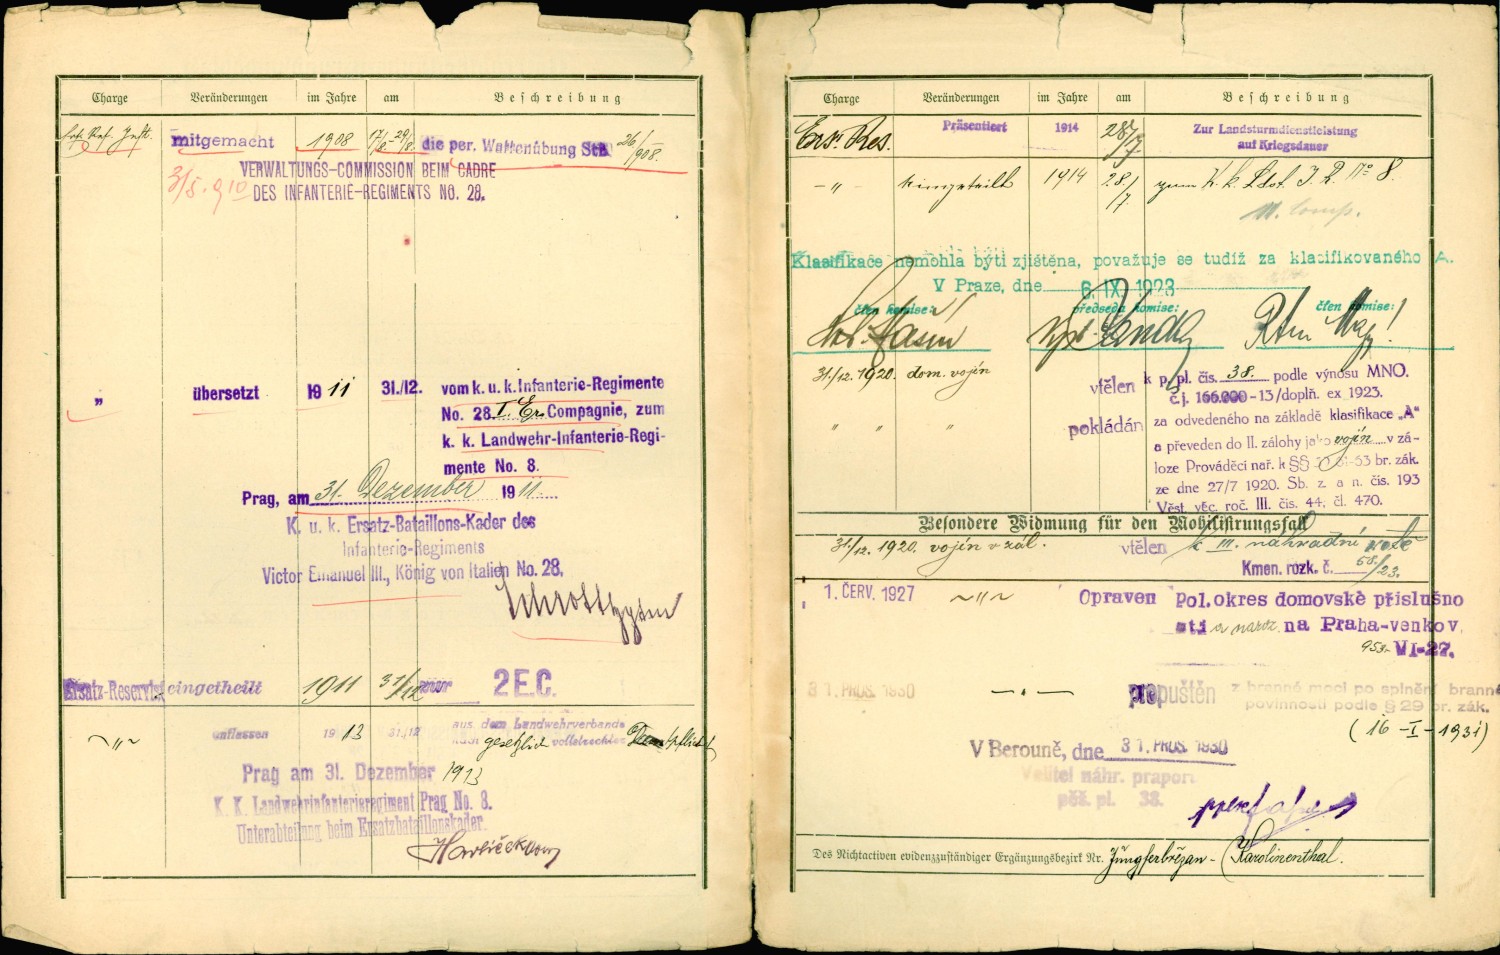 Charge Veränderungen im Jahre am Beschreibung
Ers. Res. Inft. mitgemacht 1908 17/8.-29/8. die per. Waffenübung Stb. 26/908.
VERWALTUNGS-COMMISSION BEIM CADRE
31/5. 910 DES INFANTERIE-REGIMENTS No. 28.
„ übersetzt 1911 31./12. vom k. u. k. Infanterie-Regimente
No. 28 I. Er. Compagnie, zum
k. k. Landwehr-Infanterie-Regi-
mente No. 8.
Prag, am 31. Dezember 1911.
K. u. k. Ersatz-Bataillons-Kader des
Infanterie-Regiments
Victor Emanuel III., König von Italien No. 28.
Ersatz-Reservist eingetheilt 1911 31/12 2 E.C.
~„~ entlassen 1913 31./12 aus dem Landwehrverbande
nach gesetzlich vollstreckter Dienstpflicht
Prag am 31. Dezember 1913
K. K. Landwehrinfanterieregiment Prag No. 8.
Unterabteilung beim Ersatzbataillonskader.
Charge Veränderungen im Jahre am Beschreibung
Ers. Res. Präsentiert 1914 28/7 Zur Landsturmdienstleistung
auf Kriegsdauer
–„ eingeteilt 1914 28./7. zum k. k. Lst. I. R. No 8.
11. Comp.
Klasifikace nemohla býti zjištěna, považuje se tudíž za klasifikovaného A.
V Praze, dne 6. IX. 1923
člen komise: předseda komise: člen komise:
31./12. 1920. dom. vojín vtělen k p. pl. čís. 38. podle výnosu MNO.
č. j. 166.000-13/doplň. ex 1923.
„ „ „ pokládán za odvedeného na základě klasifikace „A"
a převeden do II. zálohy jako vojín v zá-
loze Prováděcí nař. k §§ 61-63 br. zák.
ze dne 27/7 1920. Sb. z. a n. čís. 193
Věst. věc. roč. III. čís. 44, čl. 470.
Besondere Widmung für den Mobilisirungsfall
31./12. 1920. vojín v zál. vtělen k III. náhradní rotě
Kmen. rozk. č. 58./23.
1. ČERV. 1927 ~„~ Opraven Pol. okres domovské příslušno
sti a naroz. na Praha-venkov,
953- VI-27.
31. PROS. 1930 —„— propuštěn z branné moci po splnění branné
povinnosti podle § 29 br. zák.
(16-I-1931)
V Berouně, dne 31. PROS. 1930
Velitel náhr. praporu
pěš. pl. 38.
Des Nichtactiven evidenzzuständiger Ergänzungsbezirk Nr. Jungferbřezan - Karolinenthal.